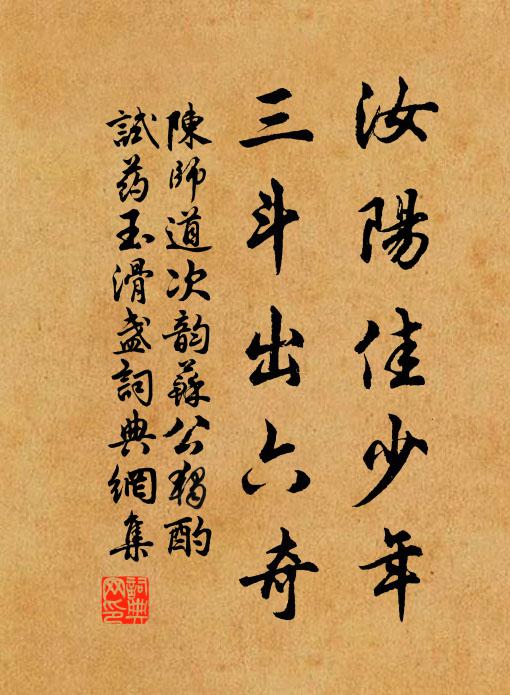 汝陽佳少年
三斗出六奇
陳師道次韵蘇公獨酌
試药玉滑盞詞典網集
詞典
网印